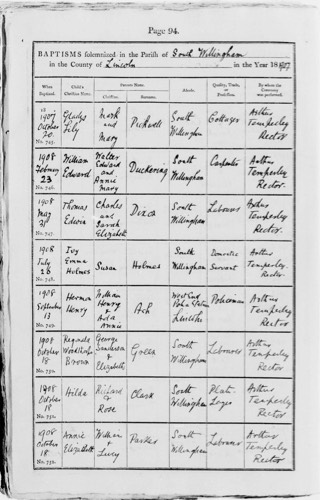 Page 94.
BAPTISMS solemnized in the Parish of South Willingham
in the County of Lincoln in the Year 1907
When Baptized. Child's Christian Name. Parents' Name. Abode. Quality, Trade, or Profession. By whom the Ceremony was performed.
Christian. Surname.
1907 October 20. No. 745. Gladys Lily Mark and Mary South Willingham Cottager Arthur Temperley Rector
1908 February 23 No. 746. William Edward Walter Edward and Annie Mary Duckering South Willingham Carpenter Arthur Temperley Rector.
1908 May 31 No. 747. Thomas Edwin Charles and Sarah Elizabeth Dixon South Willingham Labourer Arthur Temperley Rector
1908 July 26 No. 748. Ivy Emma Holmes Susan Holmes South Willingham Domestic Servant Arthur Temperley. Rector.
1908 September 13 No. 749. Herman Henry William Henry & Ada Annie Ash Police Station Policeman Arthur Temperley Rector
1908 October 18 No. 750. Brown George & Elizabeth Green South Willingham Labourer Arthur Temperley Rector
1908 October 18 No. 751. Hilda Richard & Rose Clark South Willingham Plate Layer Arthur Temperley Rector
1908 October 18 No. 752. Annie Elizabeth William & Lucy Parker South Willingham Labourer Arthur Temperley Rector